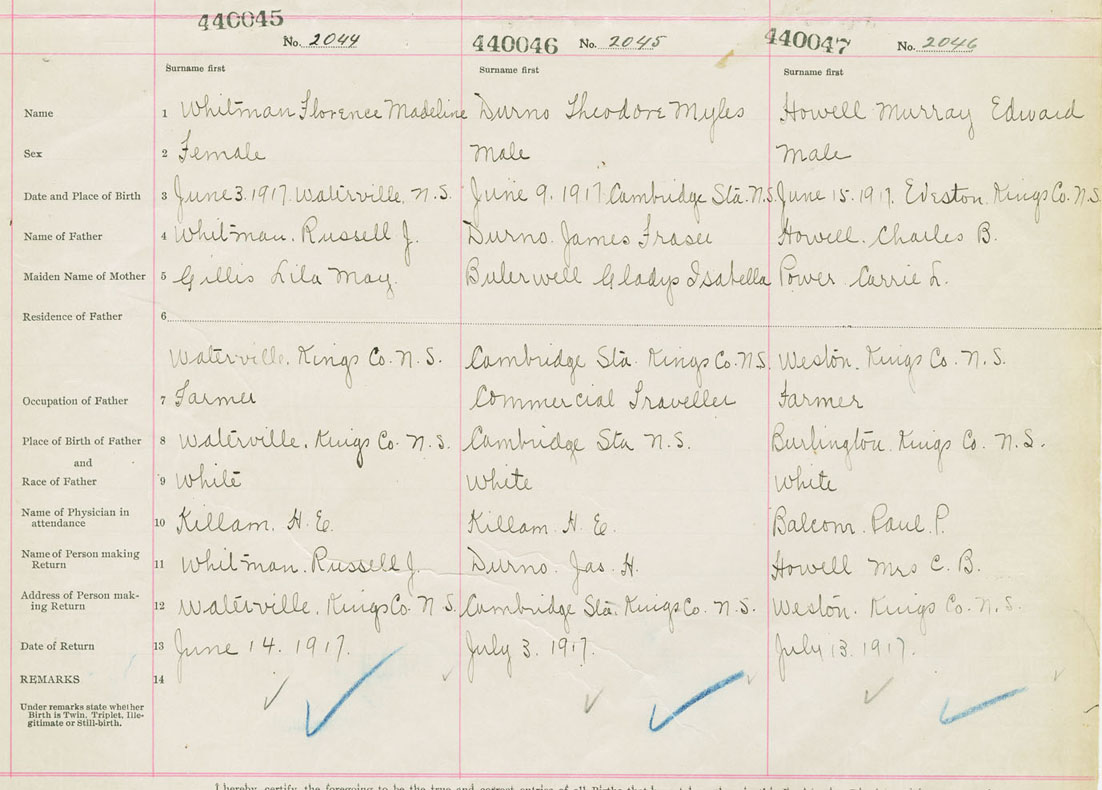 440045 No. 2044 440046 No. 2045 440047 No. 2046
Surname first Surname first Surname first
Name 1 Whitman Florence Madeline Durno Theodore Myles Howell Murray Edward
Sex 2 Female Male Male
Date and Place of Birth 3 June 3. 1917. Waterville, N.S. June 9. 1917 Cambridge Sta. N.S. June 15. 1917. Kings Co. N.S.
Name of Father 4 Whitman. Russell J. Durno. James Fraser Howell. Charles B.
Maiden Name of Mother 5 Gillis Lila May. Gladys Isabella Power Carrie L.
Residence of Father 6
Waterville. Kings Co. N.S. Cambridge Sta Kings Co. N.S. Weston. Kings Co. N.S.
Occupation of Father 7 Farmer Commercial Traveller Farmer
Place of Birth of Father 8 Waterville. Kings Co. N.S. Cambridge Sta N.S. Burlington. Kings Co. N.S.
and
Race of Father 9 White White White
Name of Physician in
attendance 10 Killam. H. E. Killam. H. E. Balcom. Paul. P.
Name of Person making
Return 11 Whitman. Russell J. Durno. Jas. H. Howell Mrs C. B.
Address of Person mak-
ing Return 12 Waterville. Kings Co. N.S. Cambridge Sta. Kings Co. N.S. Weston. Kings Co. N.S.
Date of Return 13 June 14. 1917. July 3. 1917. July 13. 1917.
REMARKS 14
Under remarks state whether
Birth is Twin, Triplet, Ille-
gitimate or Still-birth.
I hereby certify the foregoing to be the true and correct entries of all Births that